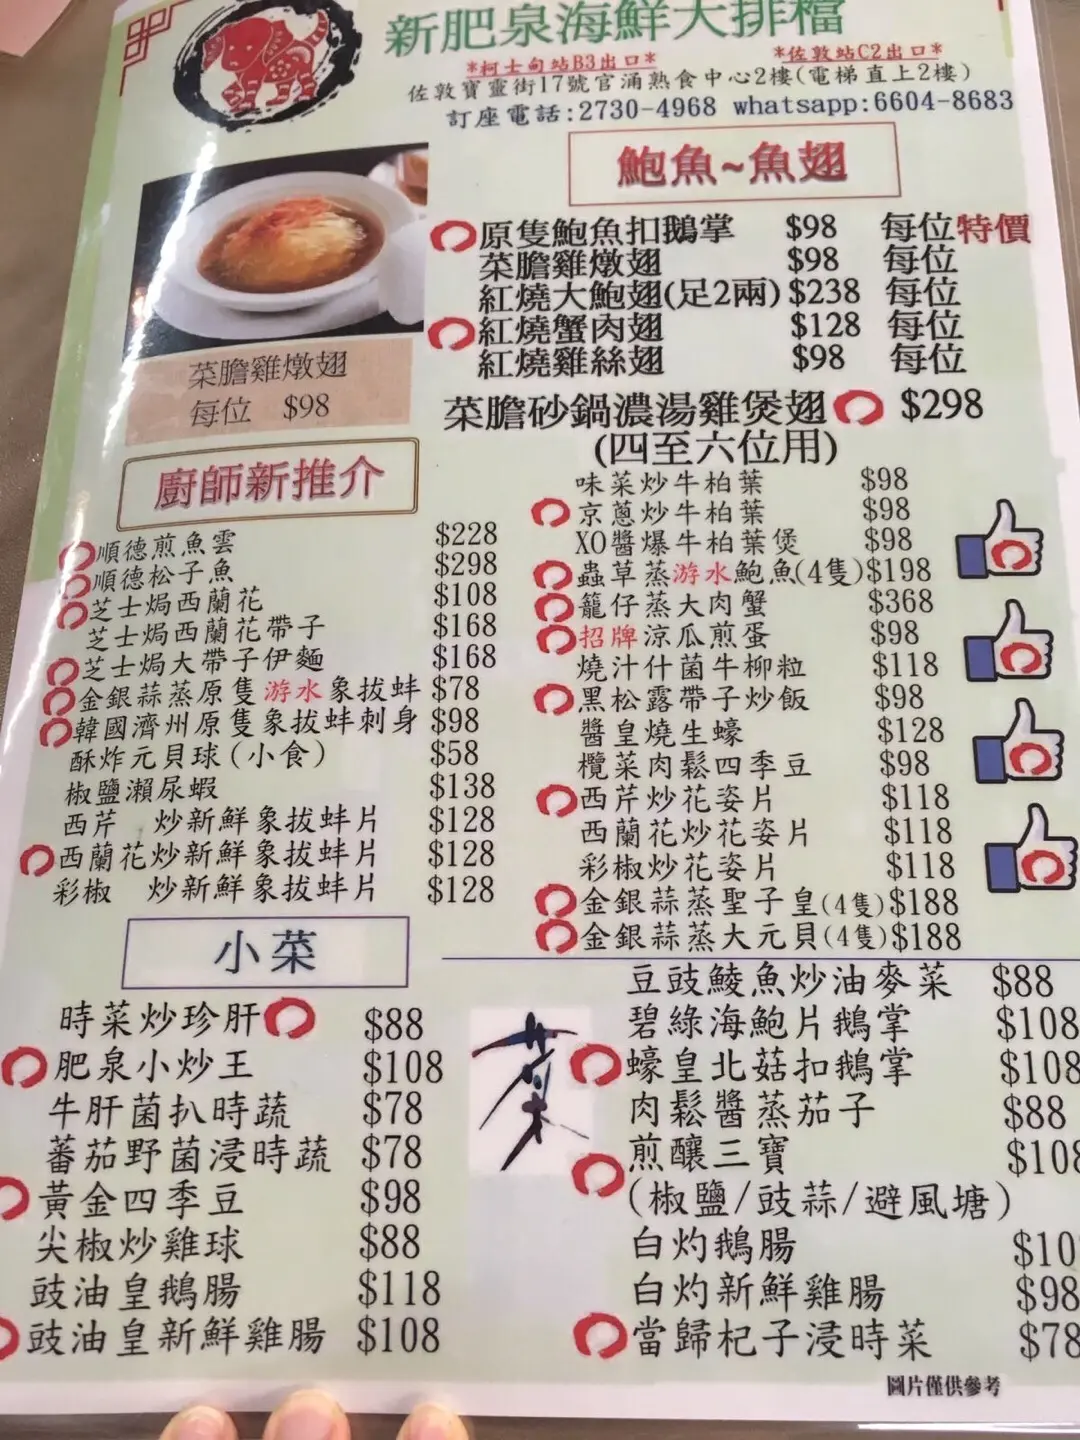 新肥泉海鮮大排檔
*柯士甸站B3出口* *佐敦站C2出口*
佐敦寶靈街17號官涌熟食中心2樓(電梯直上2樓)
訂座電話:2730-4968 whatsapp:6604-8683
鮑魚~魚翅
原隻鮑魚扣鵝掌 $98 每位特價
菜膽雞燉翅 $98 每位
紅燒大鮑翅(足2兩) $238 每位
紅燒蟹肉翅 $128 每位
紅燒雞絲翅 $98 每位
菜膽砂鍋濃湯雞煲翅 $298
(四至六位用)
菜膽雞燉翅
每位 $98
廚師新推介
順德煎魚雲 $228
順德松子魚 $298
芝士焗西蘭花 $108
芝士焗西蘭花帶子 $168
芝士焗大帶子伊麵 $168
金銀蒜蒸原隻游水象拔蚌 $78
韓國濟州原隻象拔蚌刺身 $98
酥炸元貝球(小食) $58
椒鹽瀨尿蝦 $138
西芹 炒新鮮象拔蚌片 $128
西蘭花炒新鮮象拔蚌片 $128
彩椒 炒新鮮象拔蚌片 $128
味菜炒牛柏葉 $98
京蔥炒牛柏葉 $98
XO醬爆牛柏葉煲 $98
蟲草蒸游水鮑魚(4隻) $198
籠仔蒸大肉蟹 $368
招牌涼瓜煎蛋 $98
燒汁什菌牛柳粒 $118
黑松露帶子炒飯 $98
醬皇燒生蠔 $128
欖菜肉鬆四季豆 $98
西芹炒花姿片 $118
西蘭花炒花姿片 $118
彩椒炒花姿片 $118
金銀蒜蒸聖子皇(4隻) $188
金銀蒜蒸大元貝(4隻) $188
小菜
時菜炒珍肝 $88
肥泉小炒王 $108
牛肝菌扒時蔬 $78
蕃茄野菌浸時蔬 $78
黃金四季豆 $98
尖椒炒雞球 $88
豉油皇鵝腸 $118
豉油皇新鮮雞腸 $108
菜
豆豉鯪魚炒油麥菜 $88
碧綠海鮑片鵝掌 $108
蠔皇北菇扣鵝掌 $108
肉鬆醬蒸茄子 $88
煎釀三寶 $108
(椒鹽/豉蒜/避風塘)
白灼鵝腸 $10
白灼新鮮雞腸 $98
當歸杞子浸時菜 $78
圖片僅供參考